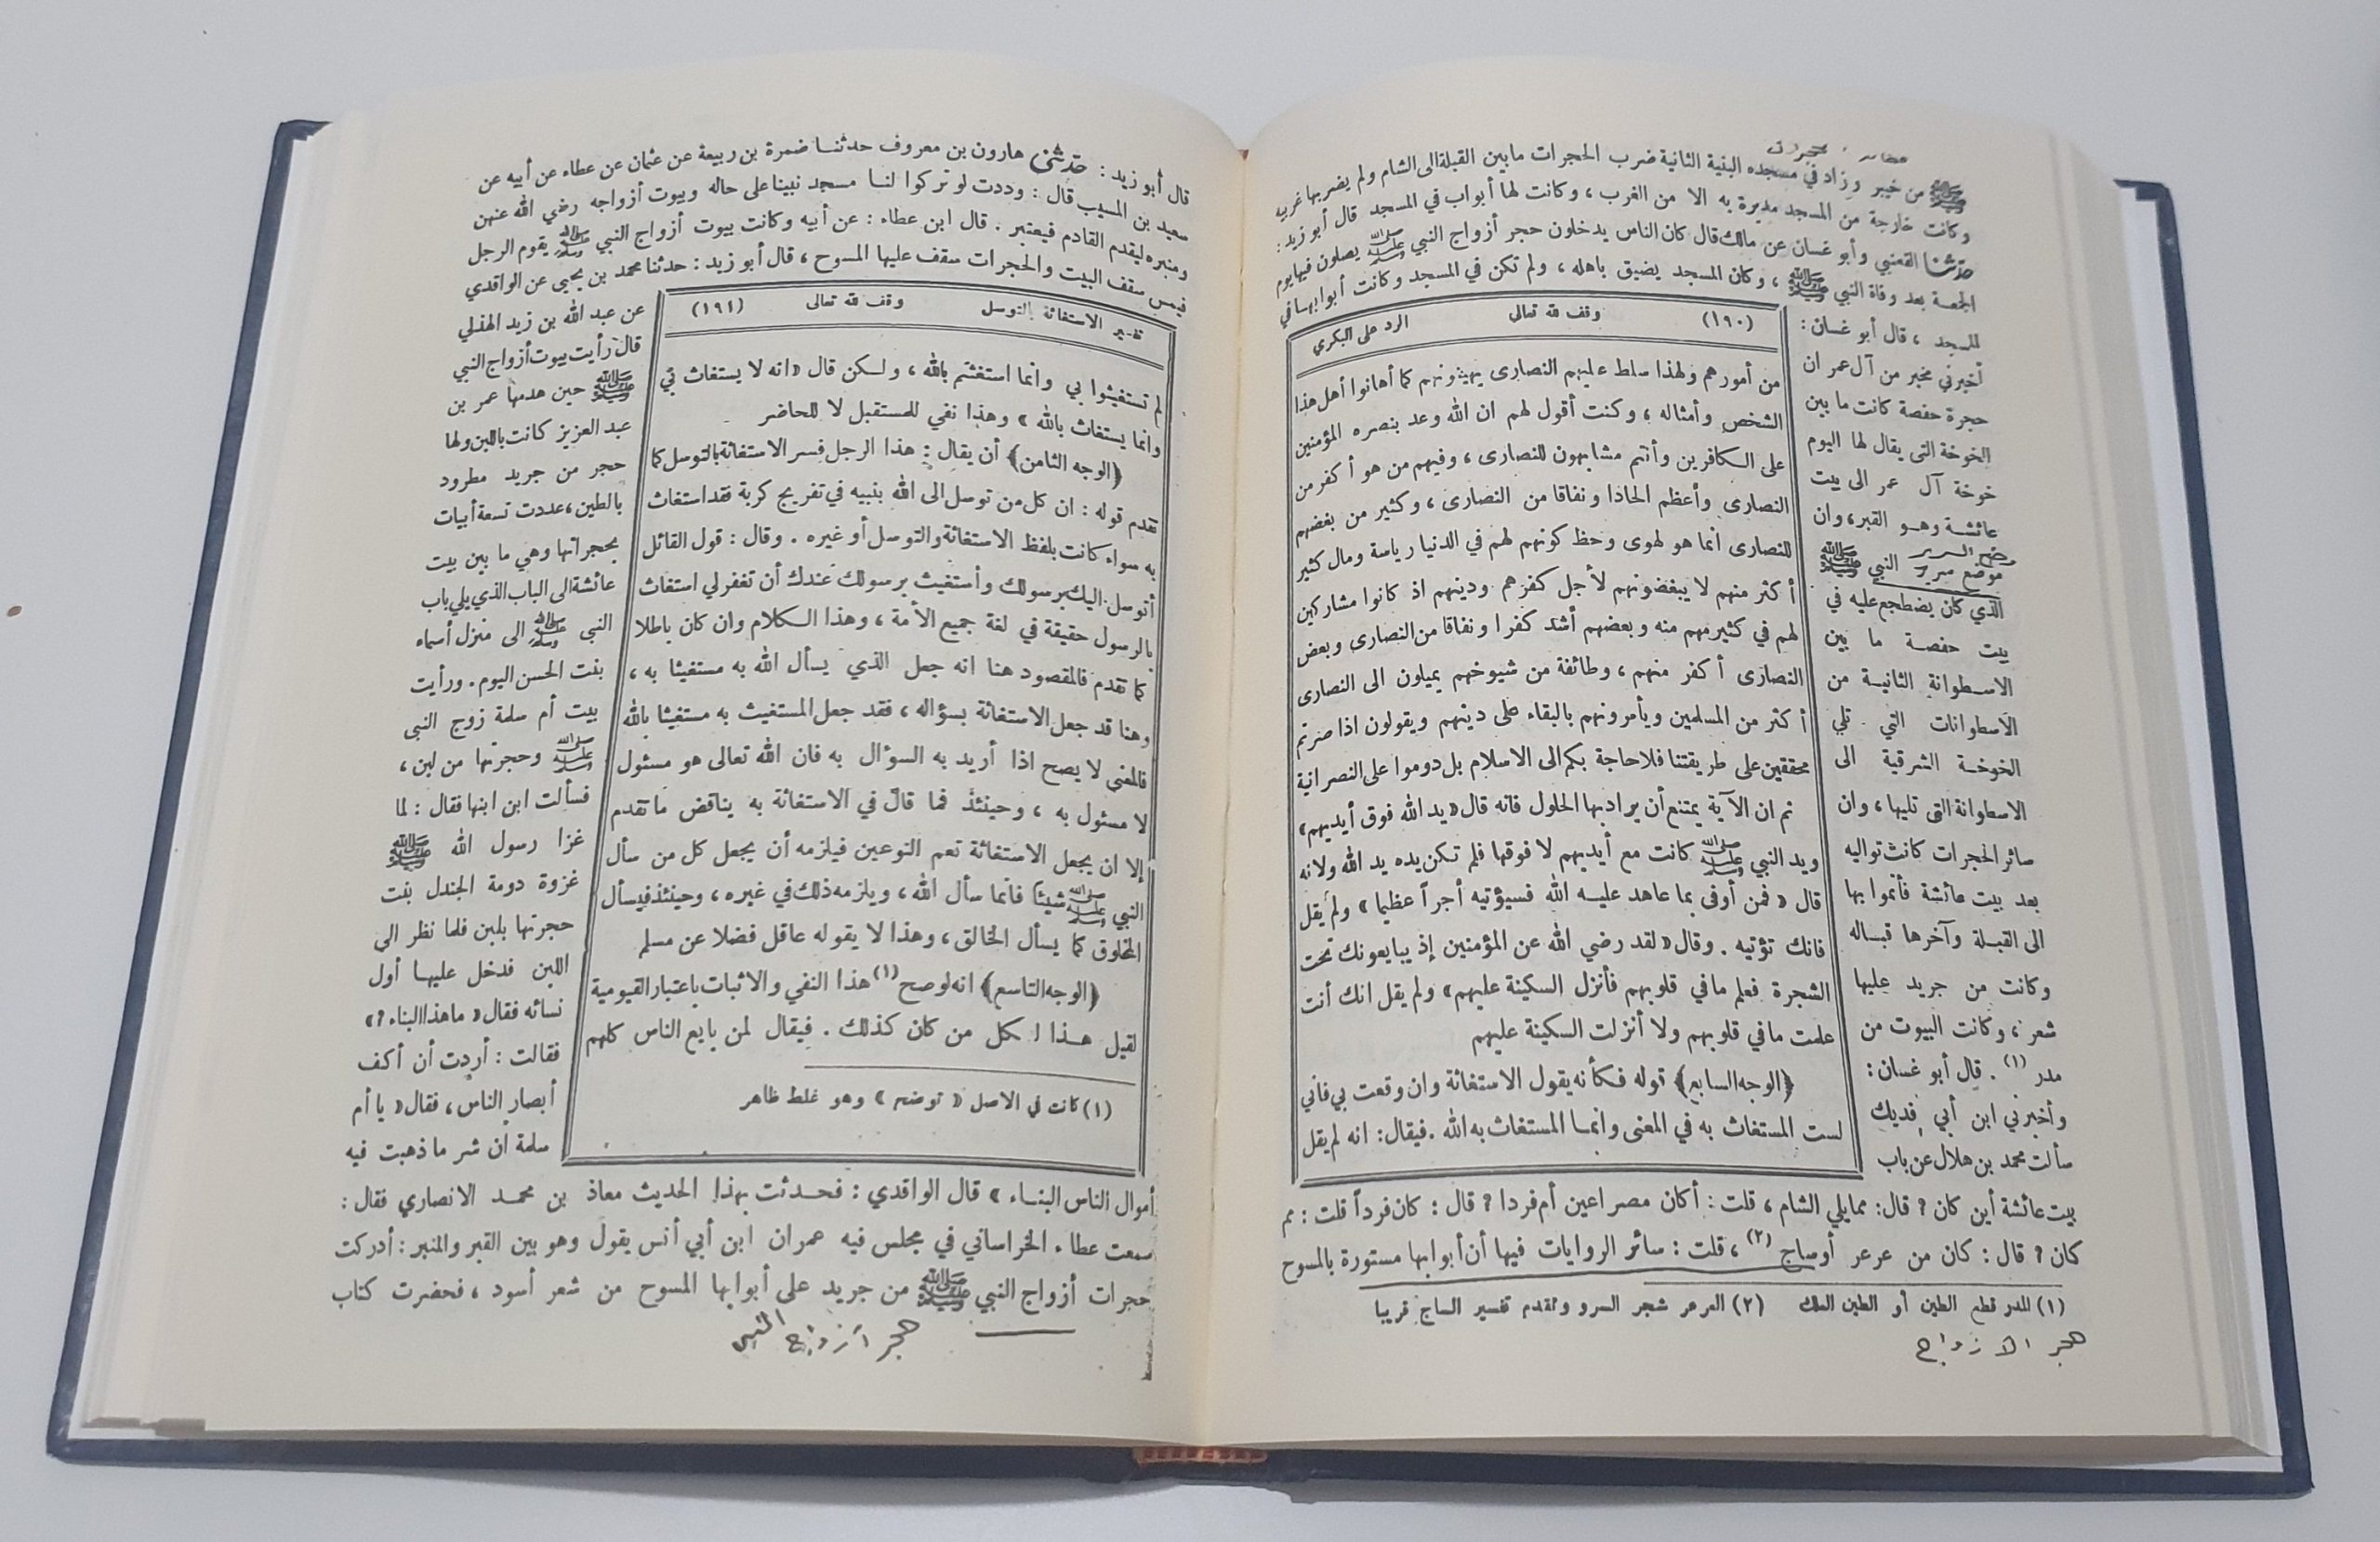 ﷺ من خيبر وزاد في مسجده البنية الثانية ضرب الحجرات مابين القبلة الى الشام ولم يضربها غربيه
وكانت خارجة من المسجد مديرة به الا من الغرب ، وكانت لها أبواب في المسجد قال أبو زيد :
حدثنا القعنبي وأبو غسان عن مالك قال كان الناس يدخلون حجر أزواج النبي ﷺ يصلون فيها يوم
الجمعة بعد وفاة النبي ﷺ ، وكان المسجد يضيق باهله ، ولم تكن في المسجد وكانت أبوابها في
للمسجد ، قال أبو غسان :
أخبرني مخبر من آل عمر ان
حجرة حفصة كانت ما بين
الخوخة التي يقال لها اليوم
خوخة آل عمر الى بيت
عائشة وهو القبر ، وان
موضع السرير
موضع سرير النبي ﷺ
الذي كان يضطجع عليه في
بيت حفصة ما بين
الاسطوانة الثانية من
الاسطوانات التي تلي
الخوخة الشرقية الى
الاسطوانة التي تليها ، وان
سائر الحجرات كانت تواليه
بعد بيت عائشة فأتموا بها
الى القبلة وآخرها قباله
وكانت من جريد عليها
شعر ، وكانت البيوت من
مدر (١) . قال أبو غسان :
وأخبرني ابن أبي فديك
سألت محمد بن هلال عن باب
(١٩٠) وقف لله تعالى الرد على البكري
من أمورهم ولهذا سلط عليهم النصارى يهينونهم كما أهانوا أهل هذا
الشخص وأمثاله ، وكنت أقول لهم ان الله وعد بنصره المؤمنين
على الكافرين وأنتم مشابهون للنصارى ، وفيهم من هو أكفر من
النصارى وأعظم الحادا ونفاقا من النصارى ، وكثير من بغضهم
للنصارى انما هو لهوى وحظ كونهم لهم في الدنيا رياسة ومال كثير
أكثر منهم لا يبغضونهم لأجل كفرهم ودينهم اذ كانوا مشاركين
لهم في كثير مهم منه وبعضهم أشد كفرا ونفاقا من النصارى وبعض
النصارى أكفر منهم ، وطائفة من شيوخهم يميلون الى النصارى
أكثر من المسلمين ويأمرونهم بالبقاء على دينهم ويقولون اذا صرتم
محققين على طريقتنا فلا حاجة بكم الى الاسلام بل دوموا على النصرانية
ثم ان الآية يمتنع أن يراد بها الحلول فانه قال « يد الله فوق أيديهم »
ويد النبي ﷺ كانت مع أيديهم لا فوقها فلم تكن يده يد الله ولانه
قال « فمن أوفى بما عاهد عليه الله فسيؤتيه أجراً عظيما » ولم يقل
فانك تؤتيه . وقال « لقد رضي الله عن المؤمنين إذ يبايعونك تحت
الشجرة فعلم ما في قلوبهم فأنزل السكينة عليهم » ولم يقل انك أنت
علمت ما في قلوبهم ولا أنزلت السكينة عليهم
( الوجه السابع ) قوله فكأنه يقول الاستغاثة وان وقعت بي فاني
لست المستغاث به في المعنى وانما المستغاث به الله . فيقال : انه لم يقل
بيت عائشة أين كان ؟ قال : ممايلي الشام ، قلت : أكان مصراعين أم فردا ؟ قال : كان فرداً قلت : مم
كان ؟ قال : كان من عرعر أوساج (٢) ، قلت : سائر الروايات فيها أن أبوابها مستورة بالمسوح
(١) المدر قطع الطين أو الطين العلك (٢) العرعر شجر السرو وتقدم تفسير الساج قريبا
حجر الازواج
قال أبو زيد : حدثني هارون بن معروف حدثنا ضمرة بن ربيعة عن عثمان عن عطاء عن أبيه عن
سعيد بن المسيب قال : وددت لو تركوا لنا مسجد نبينا على حاله وبيوت أزواجه رضي الله عنهن
ومنبره ليقدم القادم فيعتبر . قال ابن عطاء : عن أبيه وكانت بيوت أزواج النبي ﷺ يقوم الرجل
فيمس سقف البيت والحجرات سقف عليها المسوح ، قال أبو زيد : حدثنا محمد بن يحيى عن الواقدي
عن عبد الله بن زيد الهذلي
قال رأيت بيوت أزواج النبي
ﷺ حين هدمها عمر بن
عبد العزيز كانت باللبن ولها
حجر من جريد مطرود
بالطين ، عددت تسعة أبيات
بحجراتها وهي ما بين بيت
عائشة الى الباب الذي يلي باب
النبي ﷺ الى منزل أسماء
بنت الحسن اليوم . ورأيت
بيت أم سلمة زوج النبي
ﷺ وحجرتها من لبن ،
فسألت ابن ابنها فقال : لما
غزا رسول الله ﷺ
غزوة دومة الجندل بنت
حجرتها بلبن فلما نظر الى
اللبن فدخل عليها أول
نسائه فقال « ماهذا البناء ؟ »
فقالت : أردت أن أكف
أبصار الناس ، فقال « يا أم
سلمة ان شر ما ذهبت فيه
تفسير الاستغاثة بالتوسل وقف لله تعالى (١٩١)
لم تستغيثوا بي وانما استغثتم بالله ، ولكن قال « انه لا يستغاث بي
وانما يستغاث بالله » وهذا نفي للمستقبل لا للحاضر
( الوجه الثامن ) أن يقال : هذا الرجل فسر الاستغاثة بالتوسل كما
تقدم قوله : ان كل من توسل الى الله بنبيه في تفريج كربة فقد استغاث
به سواء كانت بلفظ الاستغاثة والتوسل أو غيره . وقال : قول القائل
أتوسل اليك برسولك وأستغيث برسولك عندك أن تغفر لي استغاث
بالرسول حقيقة في لغة جميع الأمة ، وهذا الكلام وان كان باطلا
كما تقدم فالمقصود هنا انه جعل الذي يسأل الله به مستغيثا به ،
وهنا قد جعل الاستغاثة بسؤاله ، فقد جعل المستغيث به مستغيثا بالله
فالمعنى لا يصح اذا أريد به السؤال به فان الله تعالى هو مسئول
لا مسئول به ، وحينئذ فما قال في الاستغاثة به يناقض ما تقدم
إلا ان يجعل الاستغاثة تعم النوعين فيلزمه أن يجعل كل من سأل
النبي ﷺ شيئا فانما سأل الله ، ويلزمه ذلك في غيره ، وحينئذ فيسأل
المخلوق كما يسأل الخالق ، وهذا لا يقوله عاقل فضلا عن مسلم
( الوجه التاسع ) انه لو صح (١) هذا النفي والاثبات باعتبار القيومية
لقيل هذا لكل من كان كذلك . فيقال لمن بايع الناس كلهم
(١) كانت في الاصل « توضح » وهو غلط ظاهر
أموال الناس البناء » قال الواقدي : فحدثت بهذا الحديث معاذ بن محمد الانصاري فقال :
سمعت عطاء الخراساني في مجلس فيه عمران ابن أبي أنس يقول وهو بين القبر والمنبر : أدركت
حجرات أزواج النبي ﷺ من جريد على أبوابها المسوح من شعر أسود ، فحضرت كتاب
حجر أزواج النبي